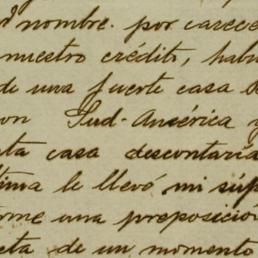 nombre. por carece
nuestro crédito, hab
de una fuerte casa
on Sud-América y
ta casa descontaría
tima le llevó mi súp
rme una preposición
eta de un momento